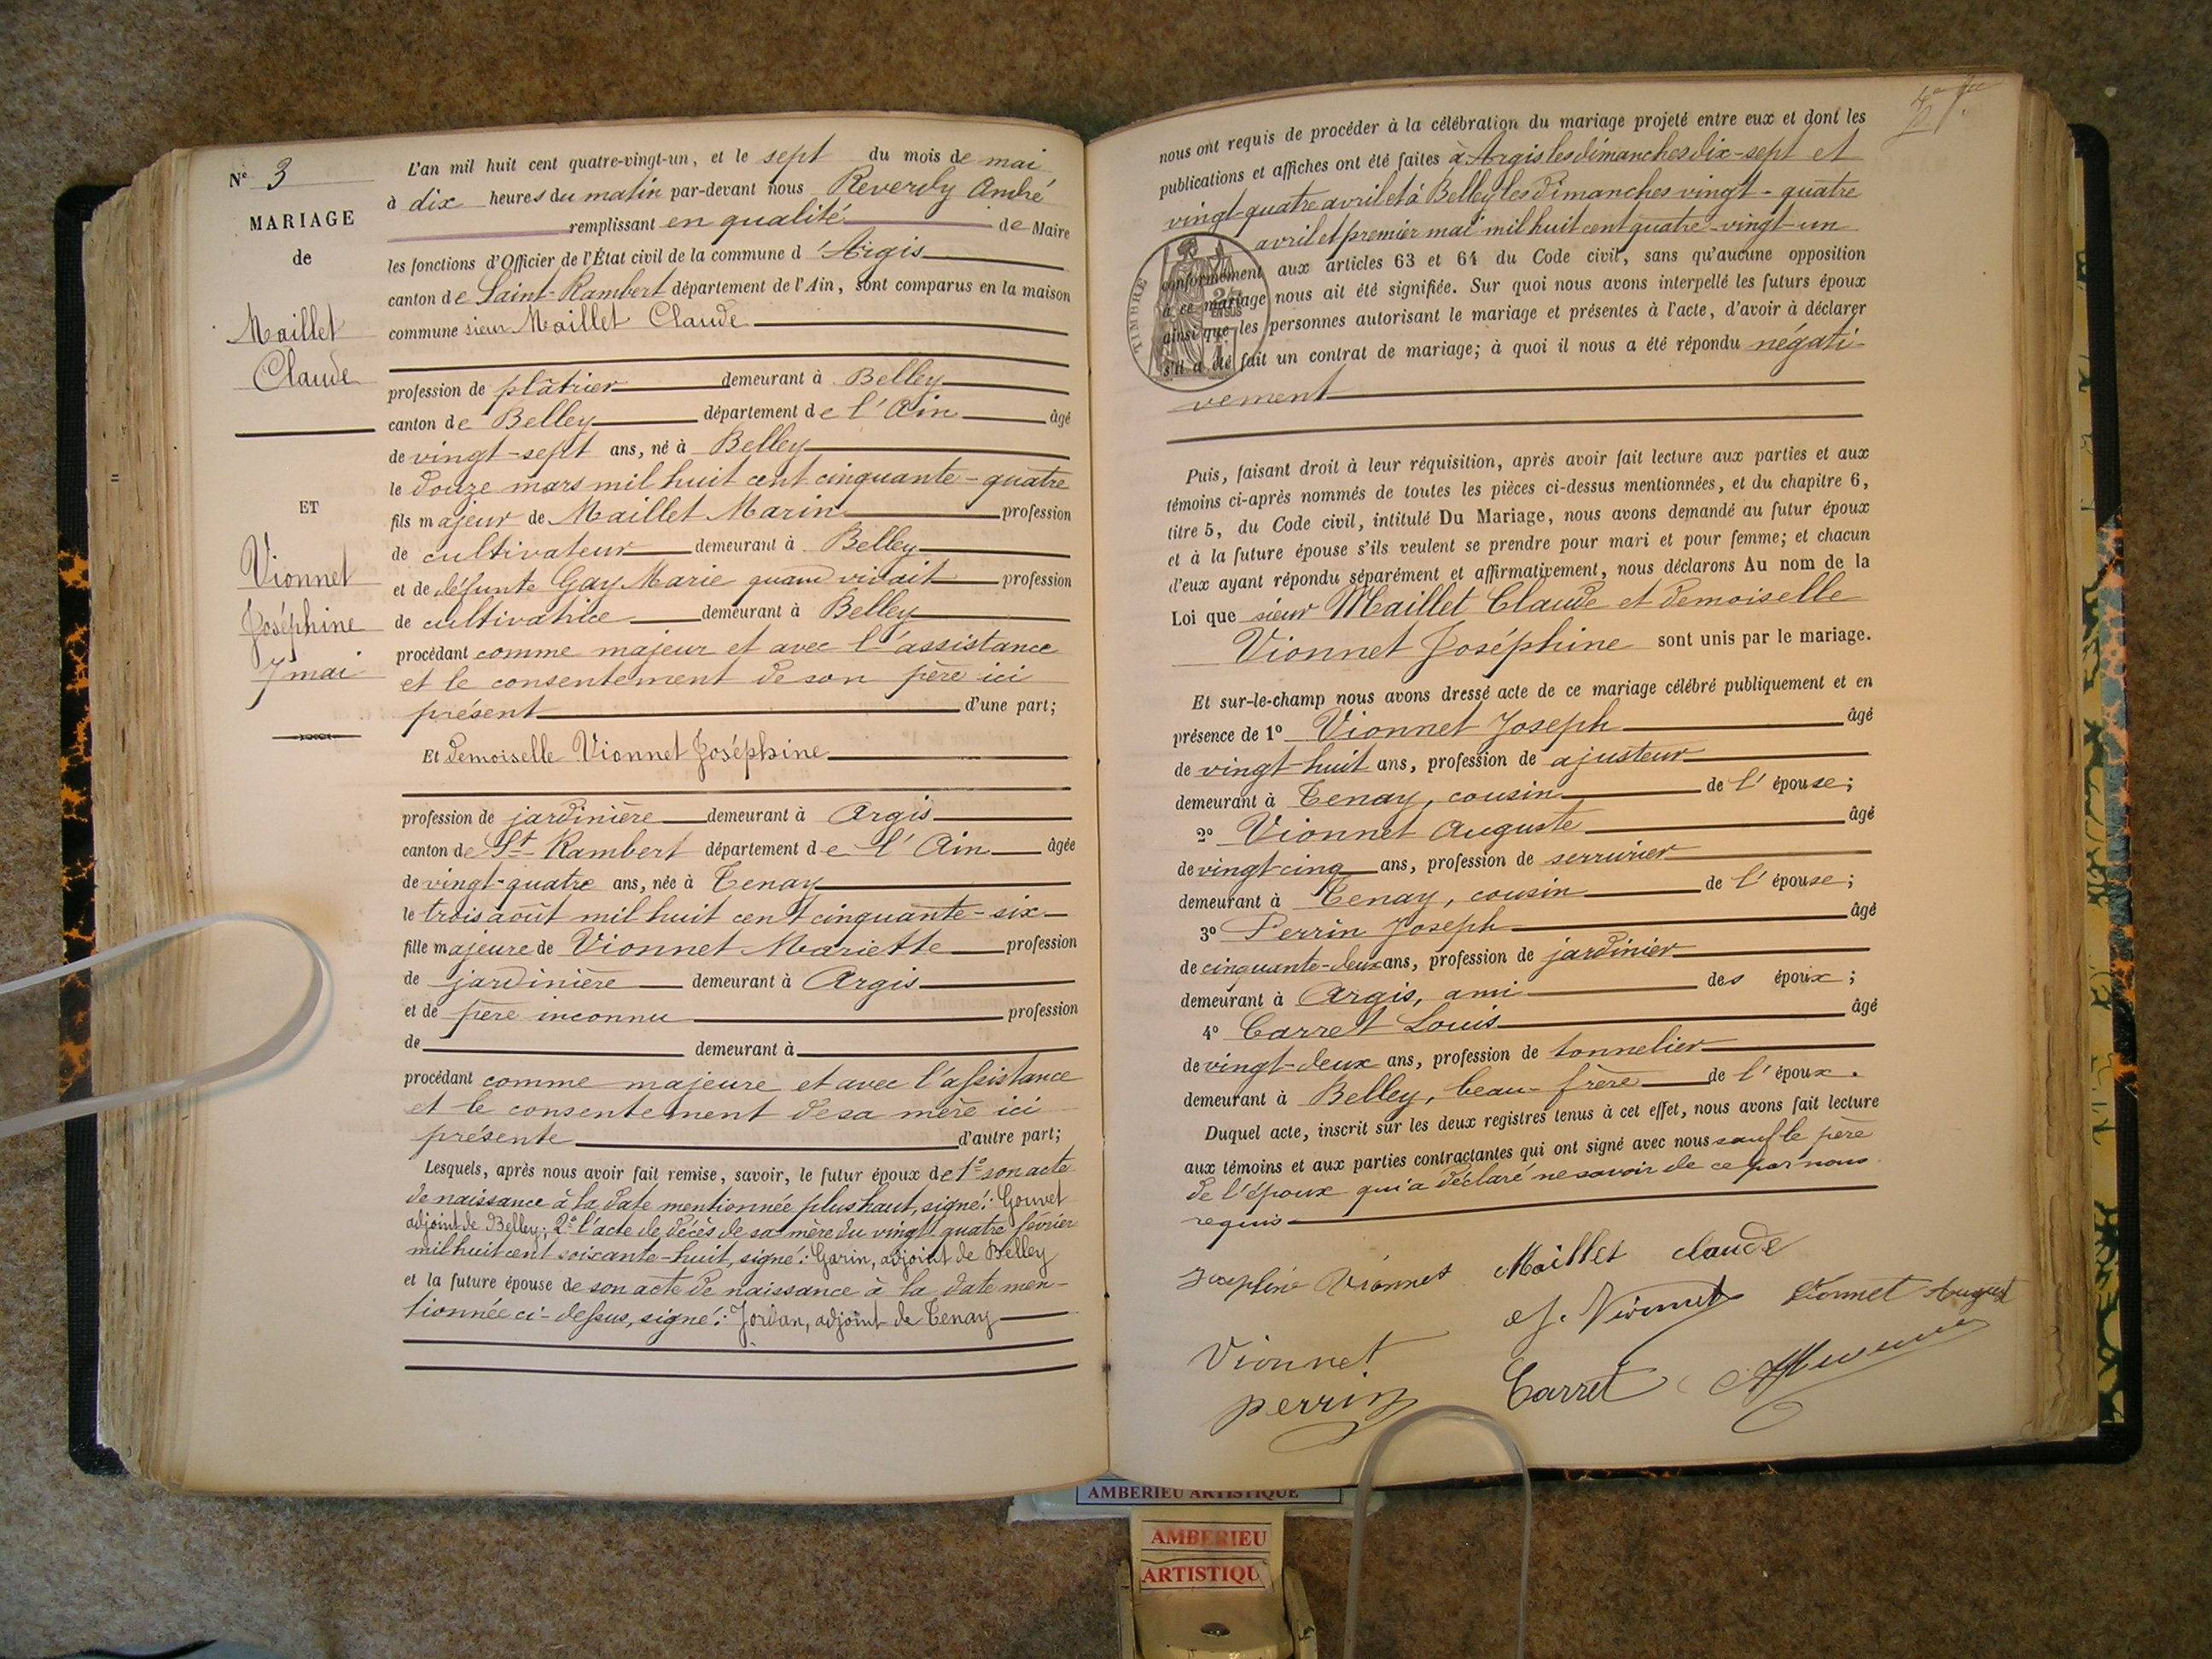 N° 3
MARIAGE
de
Maillet
Claude
ET
Vionnet
Joséphine
7 mai
L'an mil huit cent quatre-vingt-un, et le sept du mois de mai
à dix heures du matin par-devant nous Reverdy André
remplissant en qualité de Maire
les fonctions d'Officier de l'État civil de la commune d'Argis
canton de Saint-Rambert département de l'Ain, sont comparus en la maison
commune sieur Maillet Claude
profession de plâtrier demeurant à Belley
canton de Belley département de l'Ain âgé
de vingt-sept ans, né à Belley
le douze mars mil huit cent cinquante-quatre
fils majeur de Maillet Marin profession
de cultivateur demeurant à Belley
et de défunte Gay Marie quand vivait profession
de cultivatrice demeurant à Belley
procédant comme majeur et avec l'assistance
et le consentement de son père ici
présent d'une part;
Et demoiselle Vionnet Joséphine
profession de jardinière demeurant à Argis
canton de St-Rambert département de l'Ain âgée
de vingt-quatre ans, née à Tenay
le trois août mil huit cent cinquante-six
fille majeure de Vionnet Mariette profession
de jardinière demeurant à Argis
et de père inconnu profession
de demeurant à
procédant comme majeure et avec l'assistance
et le consentement de sa mère ici
présente d'autre part;
Lesquels, après nous avoir fait remise, savoir, le futur époux de 1° son acte
de naissance à la date mentionnée plus haut, signé: Gouvet
adjoint de Belley; 2° l'acte de décès de sa mère du vingt quatre février
mil huit cent soixante-huit, signé: Garin, adjoint de Belley
et la future épouse de son acte de naissance à la date men-
tionnée ci-dessus, signé: Jordan, adjoint de Tenay
nous ont requis de procéder à la célébration du mariage projeté entre eux et dont les
publications et affiches ont été faites à Argis les dimanches dix-sept et
vingt-quatre avril et à Belley les dimanches vingt-quatre
avril et premier mai mil huit cent quatre-vingt-un
conformément aux articles 63 et 64 du Code civil, sans qu'aucune opposition
à ce mariage nous ait été signifiée. Sur quoi nous avons interpellé les futurs époux
ainsi que les personnes autorisant le mariage et présentes à l'acte, d'avoir à déclarer
s'il a été fait un contrat de mariage; à quoi il nous a été répondu négati-
vement
TIMBRE
Puis, faisant droit à leur réquisition, après avoir fait lecture aux parties et aux
témoins ci-après nommés de toutes les pièces ci-dessus mentionnées, et du chapitre 6,
titre 5, du Code civil, intitulé Du Mariage, nous avons demandé au futur époux
et à la future épouse s'ils veulent se prendre pour mari et pour femme; et chacun
d'eux ayant répondu séparément et affirmativement, nous déclarons Au nom de la
Loi que sieur Maillet Claude et demoiselle
Vionnet Joséphine sont unis par le mariage.
Et sur-le-champ nous avons dressé acte de ce mariage célébré publiquement et en
présence de 1° Vionnet Joseph âgé
de vingt-huit ans, profession de ajusteur
demeurant à Tenay, cousin de l'épouse;
2° Vionnet Auguste âgé
de vingt-cinq ans, profession de serrurier
demeurant à Tenay, cousin de l'épouse;
3° Perrin Joseph âgé
de cinquante-deux ans, profession de jardinier
demeurant à Argis, ami des époux;
4° Carret Louis âgé
de vingt-deux ans, profession de tonnelier
demeurant à Belley, beau-frère de l'époux.
Duquel acte, inscrit sur les deux registres tenus à cet effet, nous avons fait lecture
aux témoins et aux parties contractantes qui ont signé avec nous sauf le père
de l'époux qui a déclaré ne savoir de ce par nous
requis
Josephine Vionnet Maillet claude
J. Vionnet Vionnet August
Vionnet
perrin Carret
AMBERIEU ARTISTIQUE
AMBERIEU
ARTISTIQU